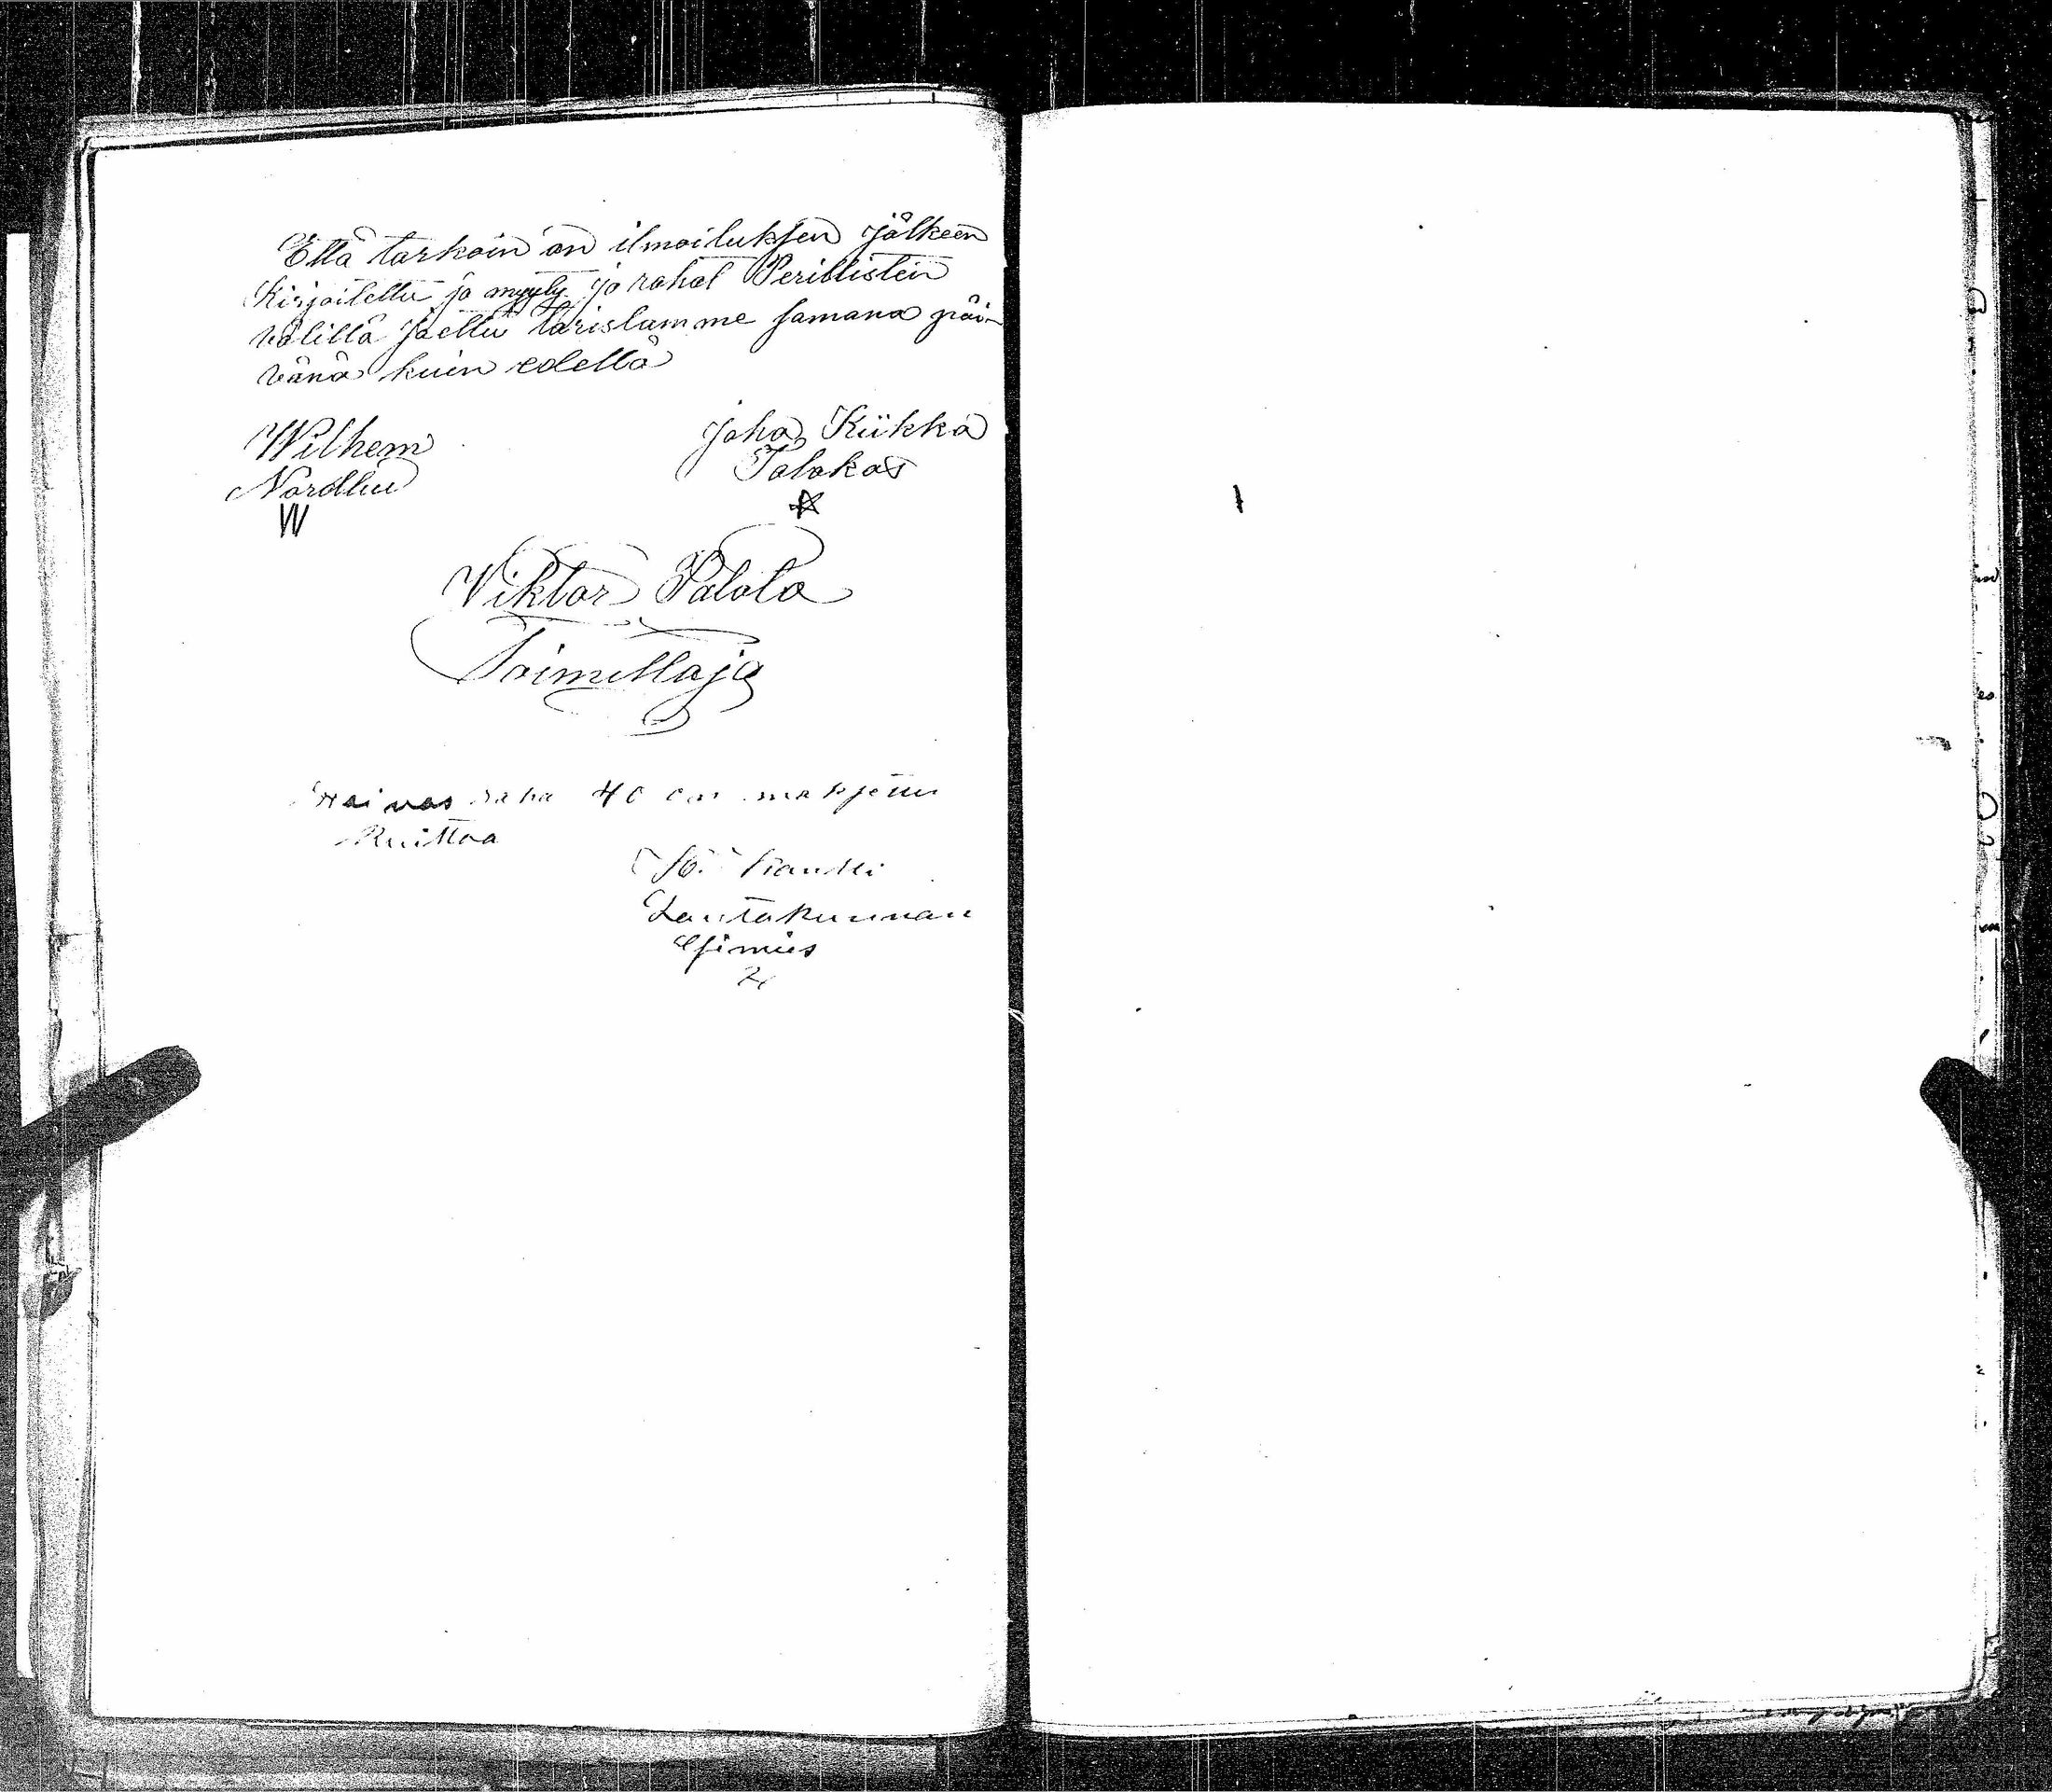 Että tarkoin on ilmoituksen jälkeen
Kirjoitettu ja myyty ja rahat Perillistein
välillä jaettu tarislamme samana päi-
vänä kuin edellä
Wilhem Joha Kiikka
Nordlin Talokas
W
Viktor Palola
Toimittaja
Vaivas raha 40 maksettu
Kuittaa
Lautakunnan
Esimies